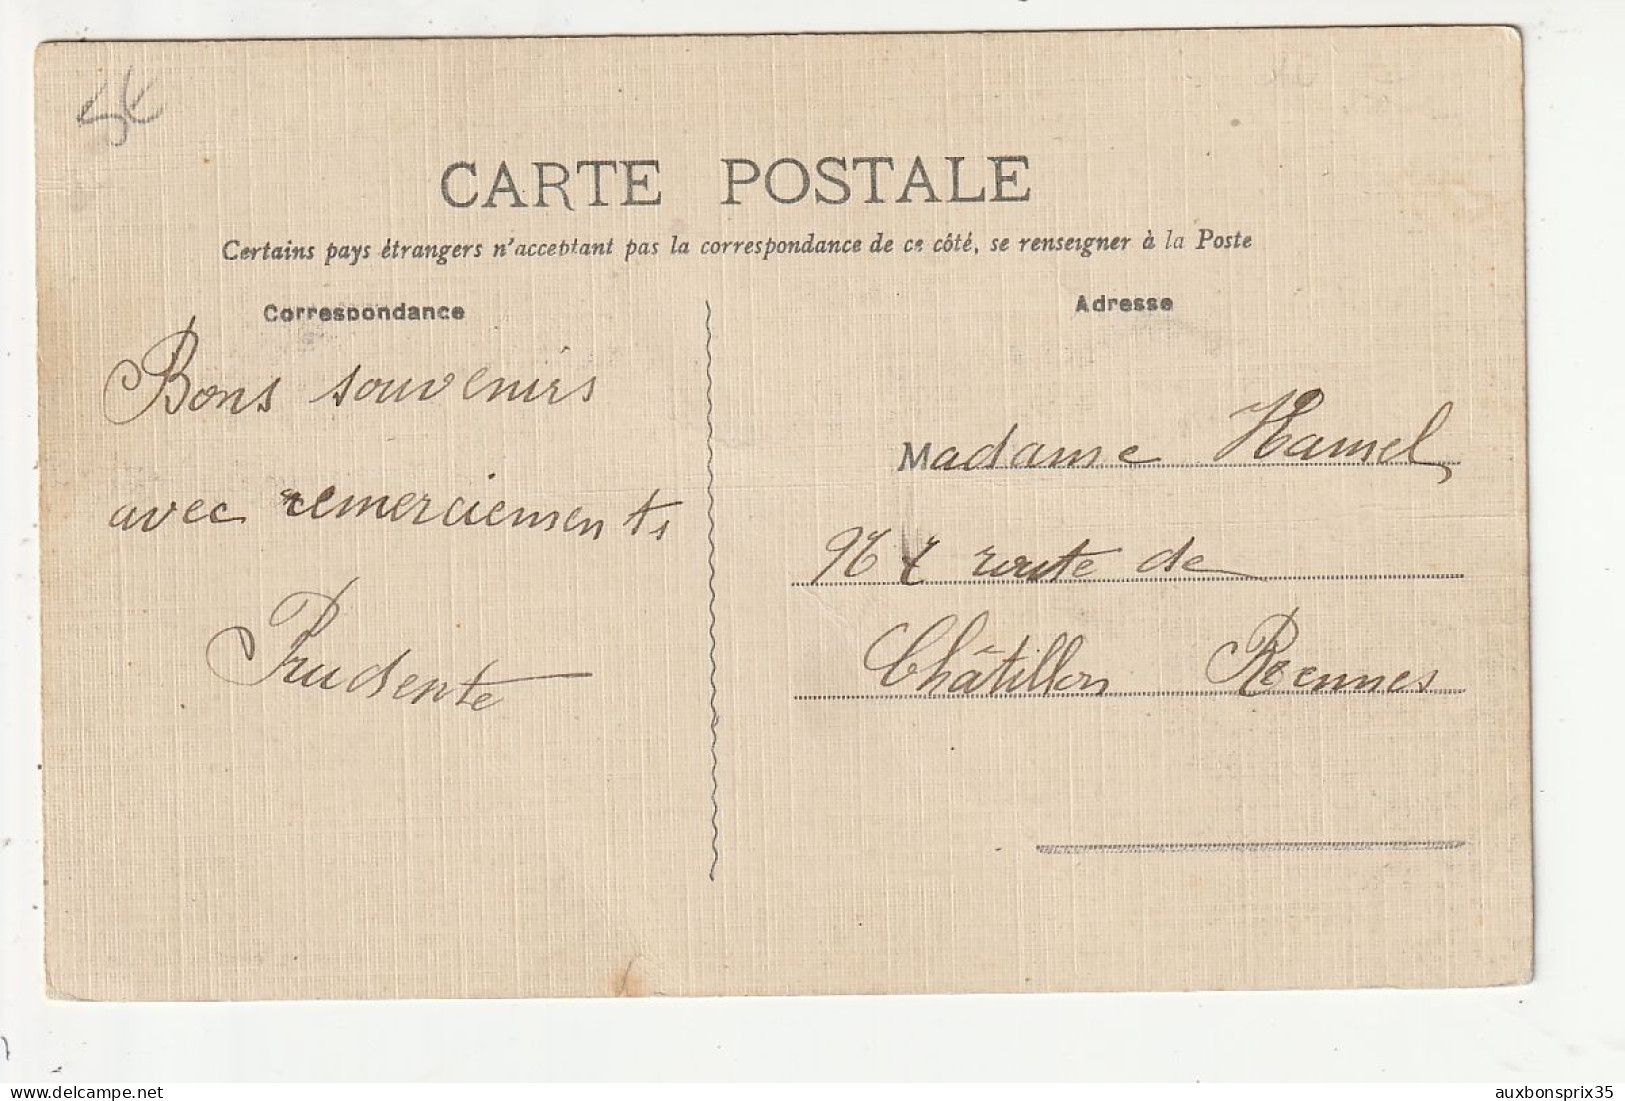 5€
CARTE POSTALE
Certains pays étrangers n'acceptant pas la correspondance de ce côté, se renseigner à la Poste
Correspondance
Adresse
Bons souvenirs
avec remerciements
Prudente
Madame Hamel
route de
Châtillon Rennes
delcampe.net
auxbonsprix35